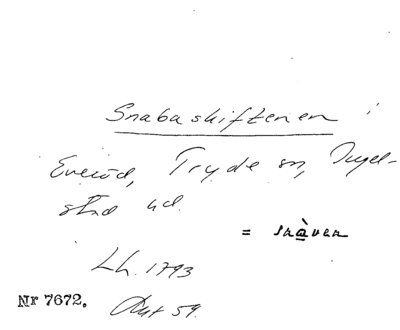 Snabaskiftenen
Everöd, Tryde sn, Ingel-
stad hd.
= snàven
Lh. 1793
Nr 7672. Akt 59.